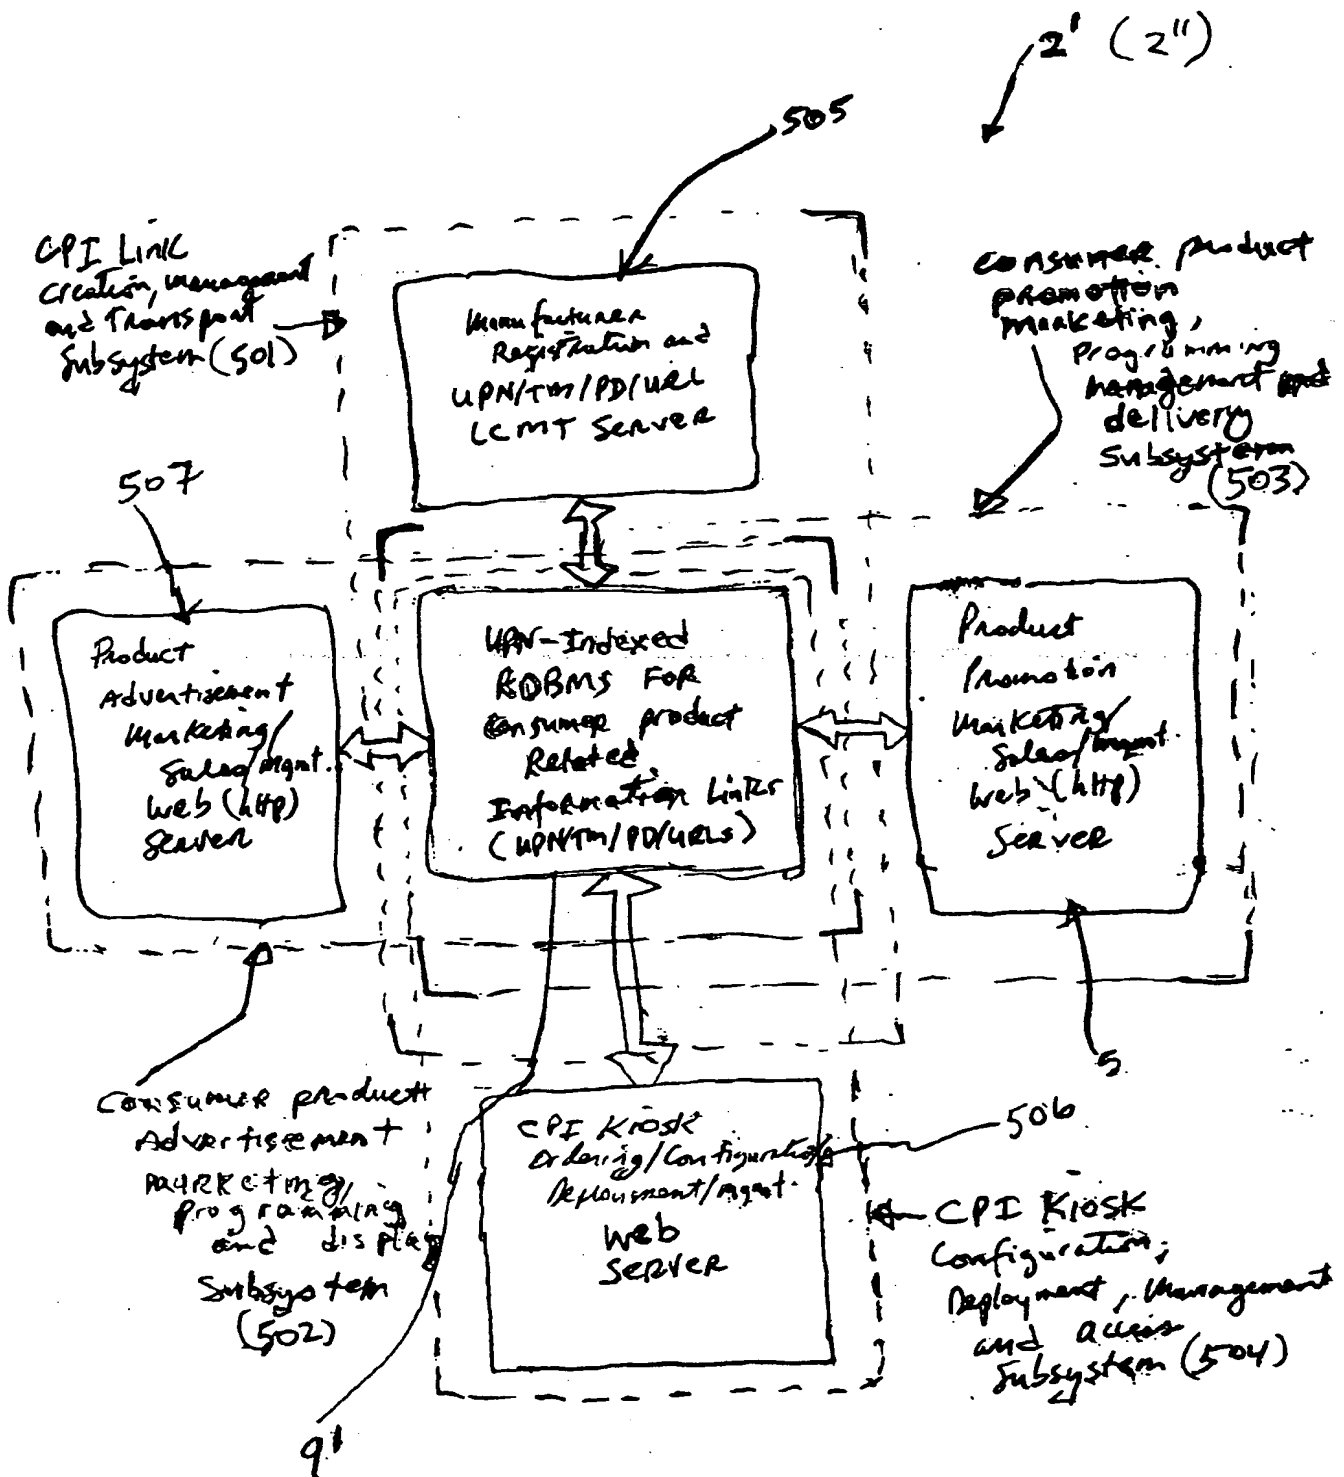 2' (2")
505
CPI Link
Creation, Management
and Transport
Subsystem (501)
Consumer product
promotion
marketing,
Programming
management and
delivery
Subsystem
(503)
Manufacturer
Registration and
UPN/TM/PD/URL
LCMT Server
507
Product
Advertisement
Marketing/
Sales/Mgmt.
Web (http)
Server
UPN-Indexed
RDBMS FOR
Consumer product
Related
Information Links
(UPN/TM/PD/URLs)
Product
Promotion
Marketing/
Sales/Mgmt.
Web (http)
Server
5
Consumer product
Advertisement
Marketing,
Programming
and display
Subsystem
(502)
CPI Kiosk
Ordering/Configuration
Deployment/Mgmt.
Web
Server
506
CPI Kiosk
Configuration,
Deployment, Management
and access
Subsystem (504)
9'